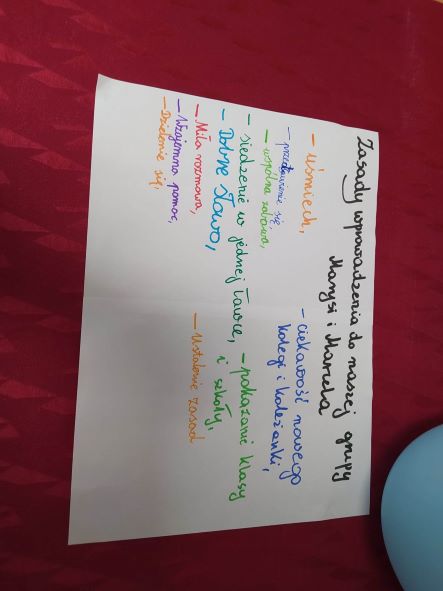 Zasady wprowadzenia do naszej grupy
Marysi i Marcela
- uśmiech,
- przedstawienie się,
- wspólna zabawa,
- siedzenie w jednej ławce,
- Dobre słowo,
- Miła rozmowa,
- Wzajemna pomoc,
- Dzielenie się,
- ciekawość nowego
kolegi i koleżanki,
- pokazanie klasy
i szkoły,
- Ustalenie zasad